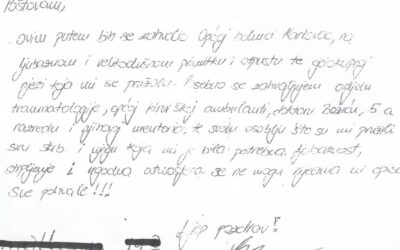 Poštovani,
ovim putem bih se zahvalio Općoj bolnici Karlovac, na
ljubaznom i velikodušnom primitku i otpustu te
njezi koja mi se pružala. Posebno se zahvaljujem odjelu
traumatologije, općoj kirurškoj ambulanti, doktoru 5 a
razredu i njihovoj mentorici, te svom osoblju što su mi pružili
svu skrb i njegu koja mi je bila potrebna. Ljubaznost,
strpljenje i ugodna atmosfera se ne mogu riječima
Sve pohvale!!!
Ljep pozdrav!